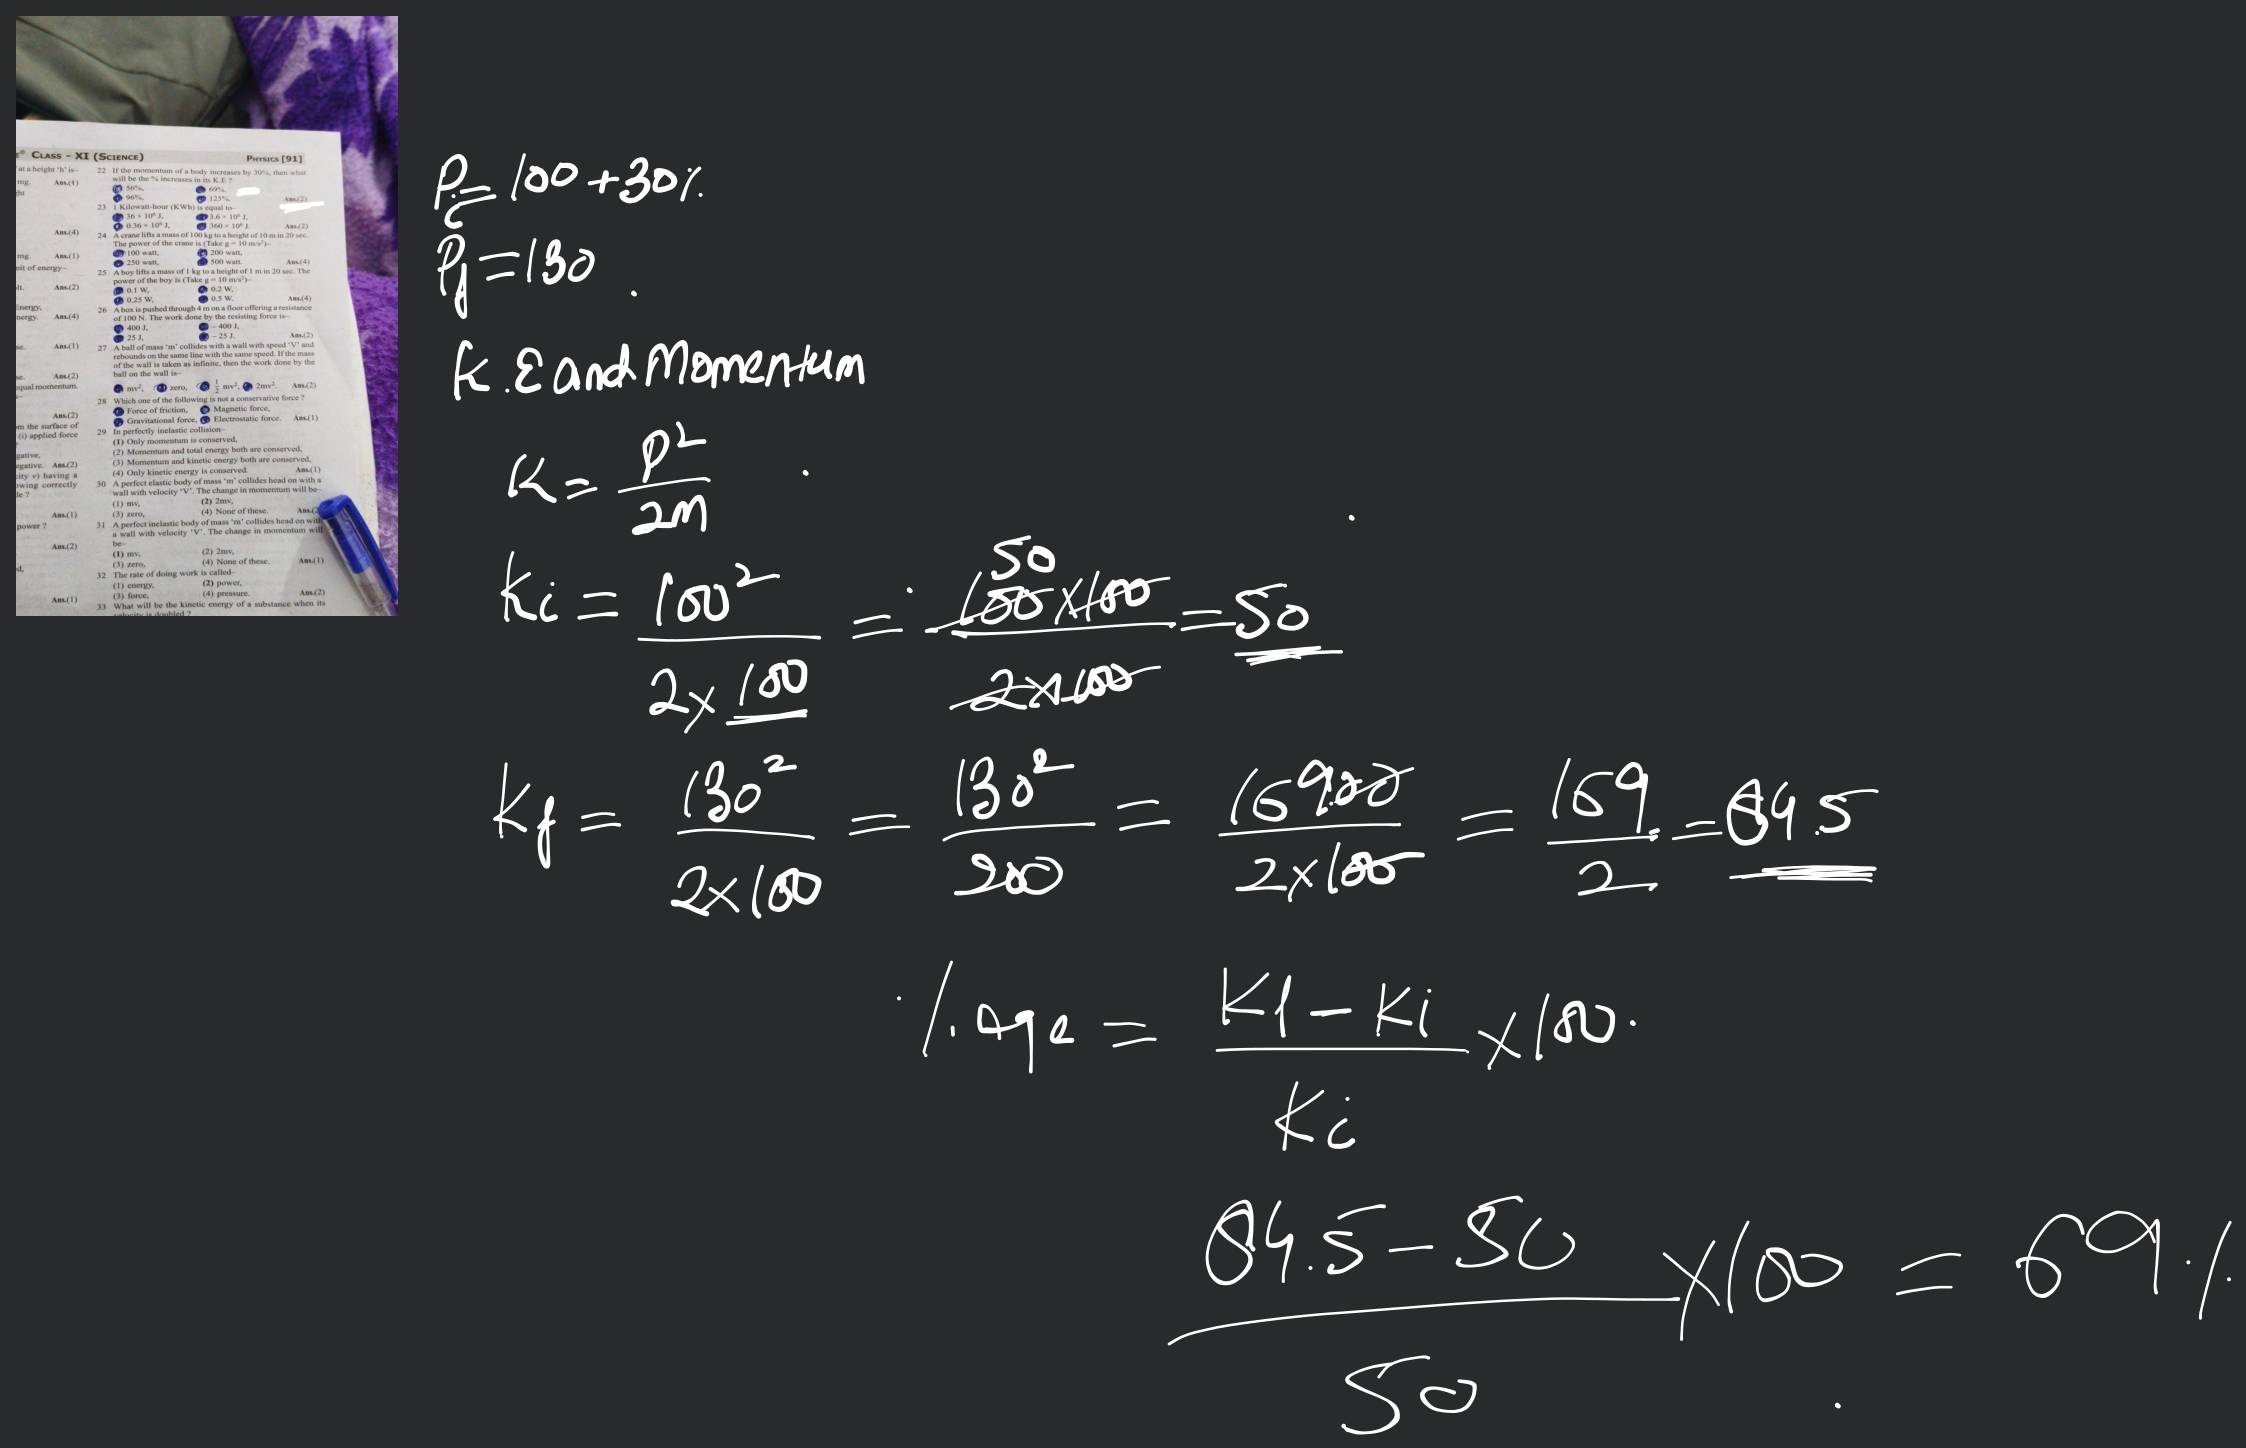 CLASS - XI (SCIENCE) PHYSICS [91]
at a height 'h' is-
mg. Ans.(1)
Ans.(4)
mg. Ans.(1)
nit of energy-
lt. Ans.(2)
Energy,
nergy. Ans.(4)
se. Ans.(1)
se. Ans.(2)
equal momentum.
Ans.(2)
om the surface of
(i) applied force
gative,
egative. Ans.(2)
city v) having a
owing correctly
Ans.(1)
power ?
Ans.(2)
Ans.(1)
22 If the momentum of a body increases by 30%, then what
will be the % increases in its K.E ?
56%, 69%,
96%, 125%. Ans.(2)
23 1 Kilowatt-hour (KWh) is equal to-
36 × 10⁶ J, 3.6 × 10⁶ J,
0.36 × 10⁶ J, 360 × 10⁶ J. Ans.(2)
24 A crane lifts a mass of 100 kg to a height of 10 m in 20 sec.
The power of the crane is (Take g = 10 m/s²)-
100 watt, 200 watt,
250 watt, 500 watt. Ans.(4)
25 A boy lifts a mass of 1 kg to a height of 1 m in 20 sec. The
power of the boy is (Take g = 10 m/s²)-
0.1 W, 0.2 W,
0.25 W, 0.5 W. Ans.(4)
26 A box is pushed through 4 m on a floor offering a resistance
of 100 N. The work done by the resisting force is-
400 J, - 400 J,
25 J, - 25 J. Ans.(2)
27 A ball of mass 'm' collides with a wall with speed 'V' and
rebounds on the same line with the same speed. If the mass
of the wall is taken as infinite, then the work done by the
ball on the wall is-
mv², zero, 1/2 mv², 2mv². Ans.(2)
28 Which one of the following is not a conservative force ?
Force of friction, Magnetic force,
Gravitational force, Electrostatic force. Ans.(1)
29 In perfectly inelastic collision-
(1) Only momentum is conserved,
(2) Momentum and total energy both are conserved,
(3) Momentum and kinetic energy both are conserved,
(4) Only kinetic energy is conserved. Ans.(1)
30 A perfect elastic body of mass 'm' collides head on with a
wall with velocity 'V'. The change in momentum will be-
(1) mv, (2) 2mv,
(3) zero, (4) None of these.
31 A perfect inelastic body of mass 'm' collides head on with
a wall with velocity 'V'. The change in momentum will
be-
(1) mv, (2) 2mv,
(3) zero, (4) None of these. Ans.(1)
32 The rate of doing work is called-
(1) energy, (2) power,
(3) force, (4) pressure. Ans.(2)
33 What will be the kinetic energy of a substance when its
velocity is doubled ?
Pi = 100 + 30%
Pf = 130
K.E and Momentum
K = P²/2M
Ki = 100²/(2×100) = 50 100×100/(2×100) = 50
Kf = 130²/(2×100) = 130²/200 = 16900/(2×100) = 169/2 = 84.5
%age = (Kf - Ki)/Ki × 100
(84.5 - 50)/50 × 100 = 69%